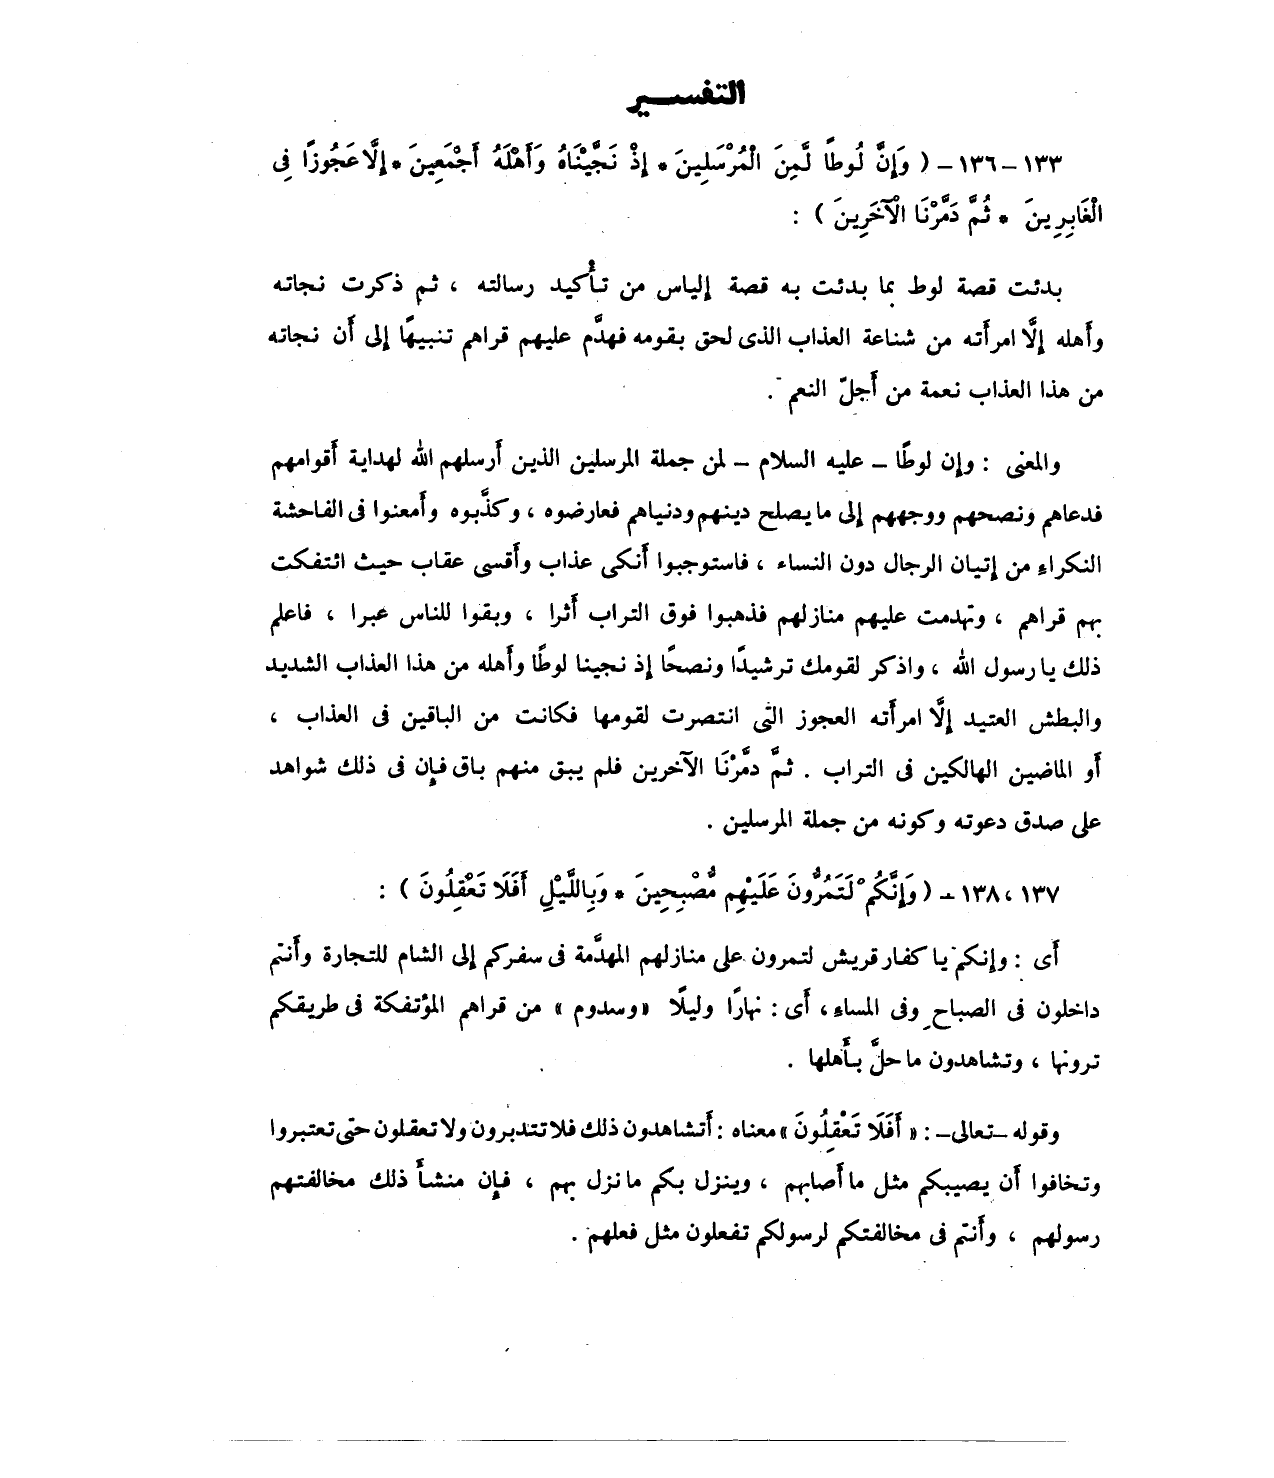 التفسير
١٣٣ – ١٣٦ – ( وَإِنَّ لُوطًا لَّمِنَ الْمُرْسَلِينَ * إِذْ نَجَّيْنَاهُ وَأَهْلَهُ أَجْمَعِينَ * إِلَّا عَجُوزًا فِى
الْغَابِرِينَ * ثُمَّ دَمَّرْنَا الْآخَرِينَ ) :
بدئت قصة لوط بما بدئت به قصة إلياس من تأكيد رسالته ، ثم ذكرت نجاته
وأهله إلَّا امرأته من شناعة العذاب الذى لحق بقومه فهدَّم عليهم قراهم تنبيهًا إلى أن نجاته
من هذا العذاب نعمة من أجلّ النعم .
والمعنى : وإن لوطًا – عليه السلام – لمن جملة المرسلين الذين أرسلهم الله لهداية أقوامهم
فدعاهم ونصحهم ووجههم إلى ما يصلح دينهم ودنياهم فعارضوه ، وكذَّبوه وأمعنوا فى الفاحشة
النكراء من إتيان الرجال دون النساء ، فاستوجبوا أنكى عذاب وأقسى عقاب حيث ائتفكت
بهم قراهم ، وتهدمت عليهم منازلهم فذهبوا فوق التراب أثرا ، وبقوا للناس عبرا ، فاعلم
ذلك يا رسول الله ، واذكر لقومك ترشيدًا ونصحًا إذ نجينا لوطًا وأهله من هذا العذاب الشديد
والبطش العتيد إلَّا امرأته العجوز التى انتصرت لقومها فكانت من الباقين فى العذاب ،
أو الماضين الهالكين فى التراب . ثمَّ دمَّرْنَا الآخرين فلم يبق منهم باق فإن فى ذلك شواهد
على صدق دعوته وكونه من جملة المرسلين .
١٣٧ ، ١٣٨ – ( وَإِنَّكُمْ لَتَمُرُّونَ عَلَيْهِم مُّصْبِحِينَ * وَبِاللَّيْلِ أَفَلَا تَعْقِلُونَ ) :
أى : وإنكم يا كفار قريش لتمرون على منازلهم المهدَّمة فى سفركم إلى الشام للتجارة وأنتم
داخلون فى الصباح وفى المساء ، أى : نهارًا وليلًا «وسدوم» من قراهم المؤتفكة فى طريقكم
ترونها ، وتشاهدون ما حلَّ بأهلها .
وقوله –تعالى– : « أَفَلَا تَعْقِلُونَ » معناه : أتشاهدون ذلك فلا تتدبرون ولا تعقلون حتى تعتبروا
وتخافوا أن يصيبكم مثل ما أصابهم ، وينزل بكم ما نزل بهم ، فإن منشأ ذلك مخالفتهم
رسولهم ، وأنتم فى مخالفتكم لرسولكم تفعلون مثل فعلهم .